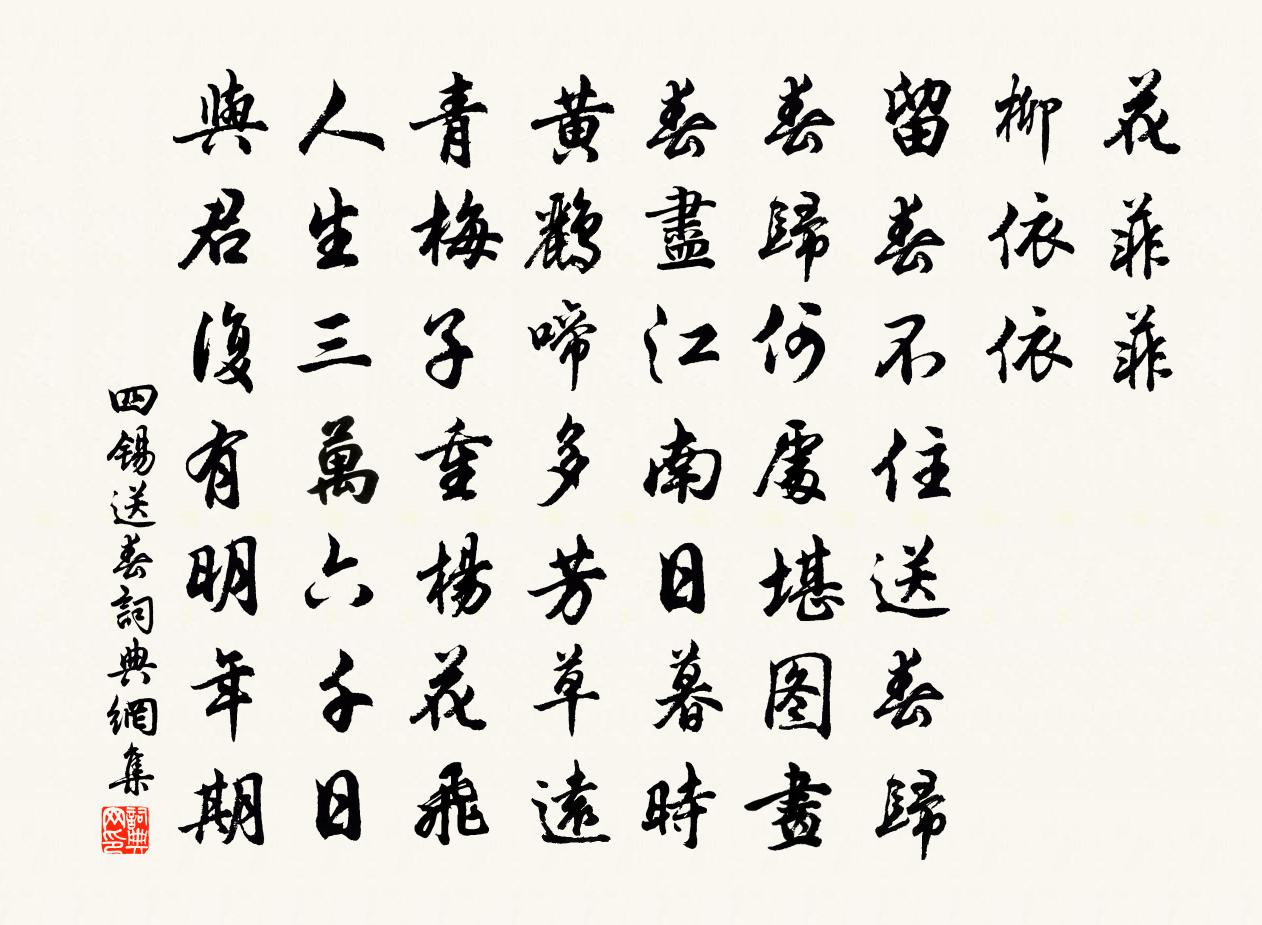 花菲菲
柳依依
留春不住送春歸
春歸何處堪图畫
春盡江南日暮時
黄鸝啼多芳草遠
青梅子重楊花飛
人生三萬六千日
與君復有明年期
四锡送春詞典網集
詞典网印